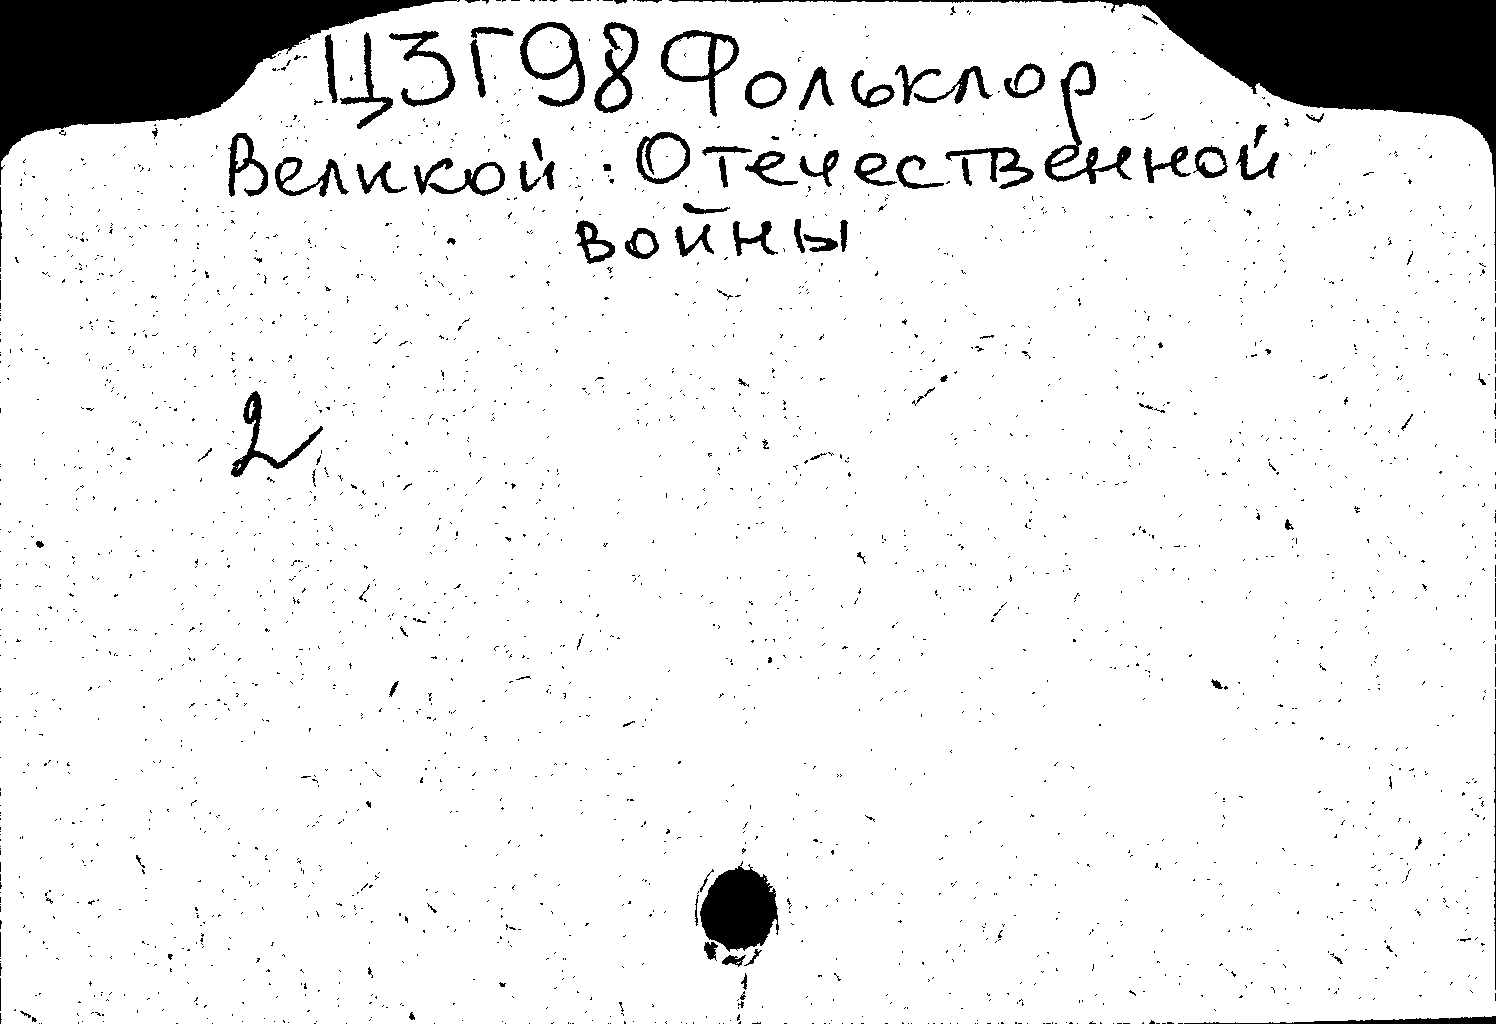 ЦЗГ98 Фольклор
Великой Отечественной
войны
2